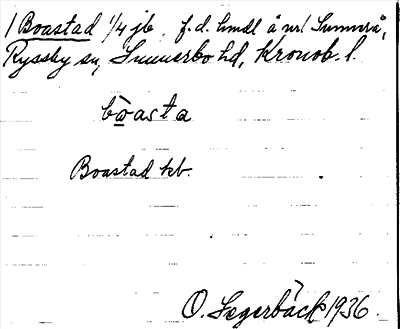 1 Boastad 1/4 jb. f.d. hmdl å nr 1 Sunnerå,
Ryssby sn, Sunnerbo hd, Kronob. l.
bo̲asta
Boastad kb.
O. Segerbäck 1936.